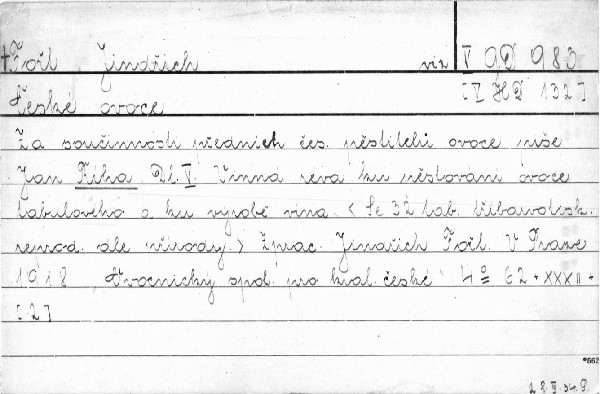 †Fořt Jindřich viz V 9D 983
České ovoce [V HD 132]
Za součinnosti předních čes. pěstitelů ovoce píše
Jan Říha Dl. V. Vinná réva ku pěstování ovoce
tabulového a ku výrobě vína. < Se 32 tab. tříbarvotisk.
reprod. dle přírody. > Zprac. Jindřich Fořt. V Praze
1918. Ovocnický spol. pro král. české 4° 62 + XXXII +
[2]
°662
28.II.34.P.